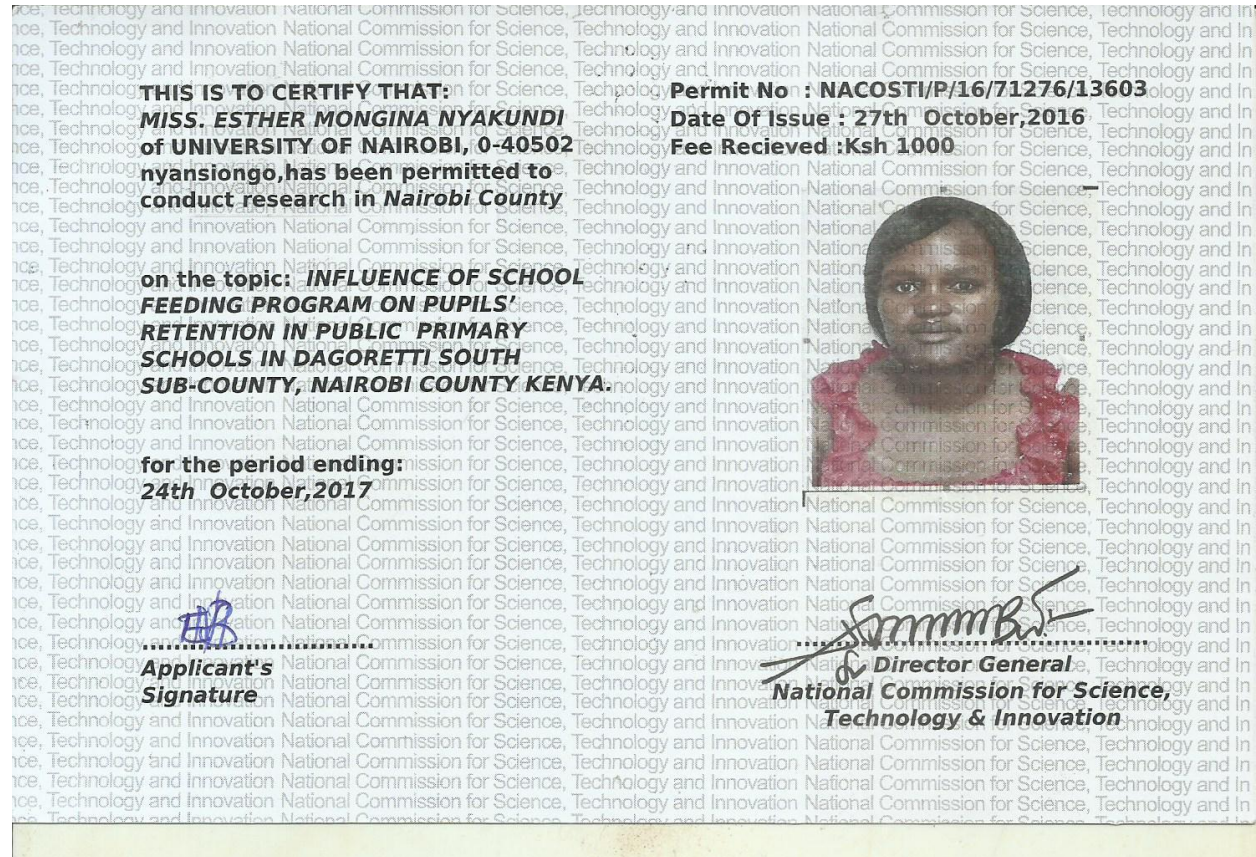 THIS IS TO CERTIFY THAT:
MISS. ESTHER MONGINA NYAKUNDI
of UNIVERSITY OF NAIROBI, 0-40502
nyansiongo,has been permitted to
conduct research in Nairobi County
on the topic: INFLUENCE OF SCHOOL
FEEDING PROGRAM ON PUPILS’
RETENTION IN PUBLIC PRIMARY
SCHOOLS IN DAGORETTI SOUTH
SUB-COUNTY, NAIROBI COUNTY KENYA.
for the period ending:
24th October,2017
Applicant's
Signature
Permit No : NACOSTI/P/16/71276/13603
Date Of Issue : 27th October,2016
Fee Recieved :Ksh 1000
Director General
National Commission for Science,
Technology & Innovation